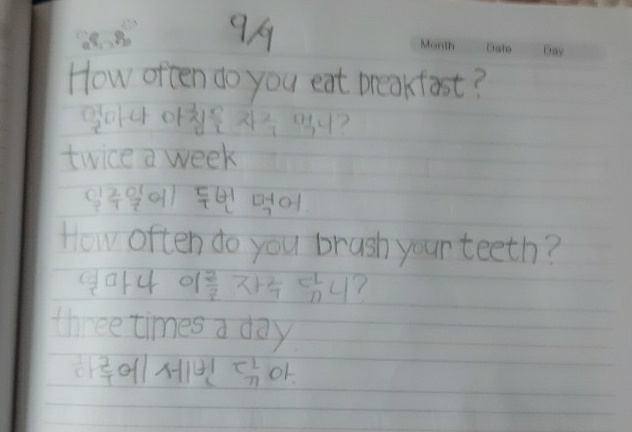 9/9
Month Date Day
How often do you eat breakfast?
얼마나 아침을 자주 먹니?
twice a week
일주일에 두번 먹어
How often do you brush your teeth?
얼마나 이를 자주 닦니?
three times a day
하루에 세번 닦아